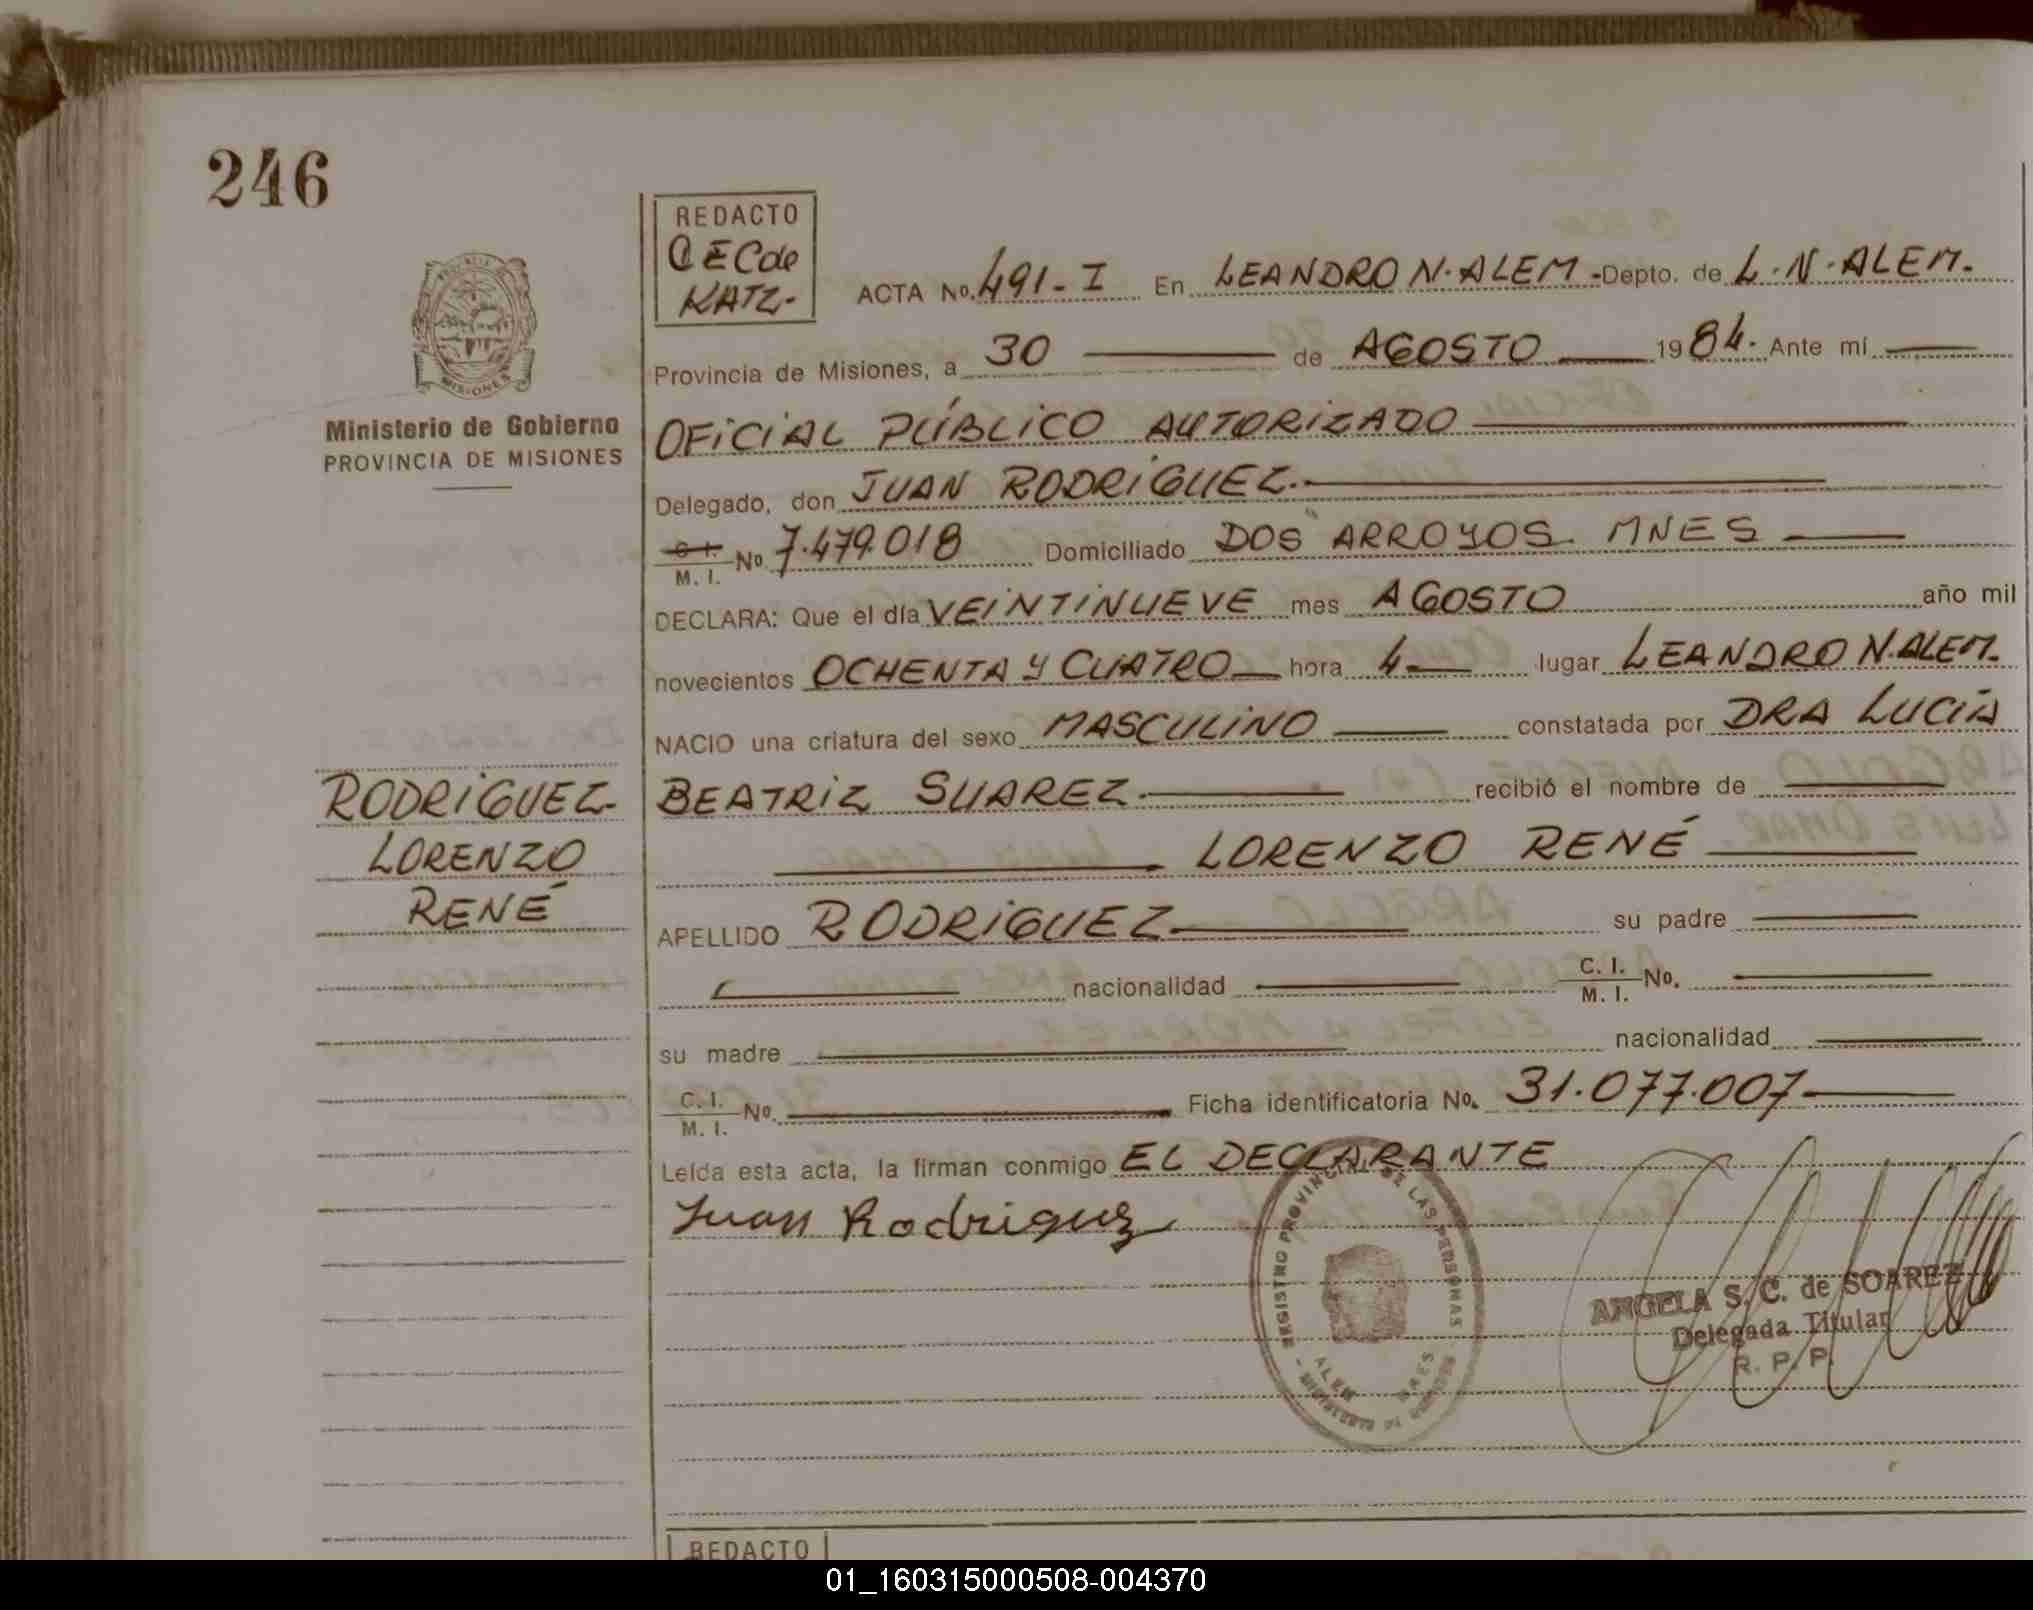 246
REDACTO
CECde
KATZ-
ACTA No. 491-I En LEANDRO N. ALEM - Depto. de L.N. ALEM.
Provincia de Misiones, a 30 de AGOSTO 1984. Ante mí
Ministerio de Gobierno
PROVINCIA DE MISIONES
OFICIAL PÚBLICO AUTORIZADO
Delegado, don JUAN RODRIGUEZ.
C. I. / M. I. No. 7.479.018 Domiciliado DOS ARROYOS. MNES
DECLARA: Que el día VEINTINUEVE mes AGOSTO año mil
novecientos OCHENTA Y CUATRO hora 4 lugar LEANDRO N. ALEM.
NACIO una criatura del sexo MASCULINO constatada por DRA LUCÍA
BEATRIZ SUAREZ. recibió el nombre de
LORENZO RENÉ
RODRIGUEZ.
LORENZO
RENÉ
APELLIDO RODRIGUEZ su padre
nacionalidad C. I. / M. I. No.
su madre nacionalidad
C. I. / M. I. No. Ficha identificatoria No. 31.077.007
Leída esta acta, la firman conmigo EL DECLARANTE
Juan Rodriguez
REGISTRO PROVINCIAL DE LAS PERSONAS
ALEM MNES
ANGELA S. C. de SOAREZ
Delegada Titular
R. P. P.
MISIONES
REDACTO
01_160315000508-004370